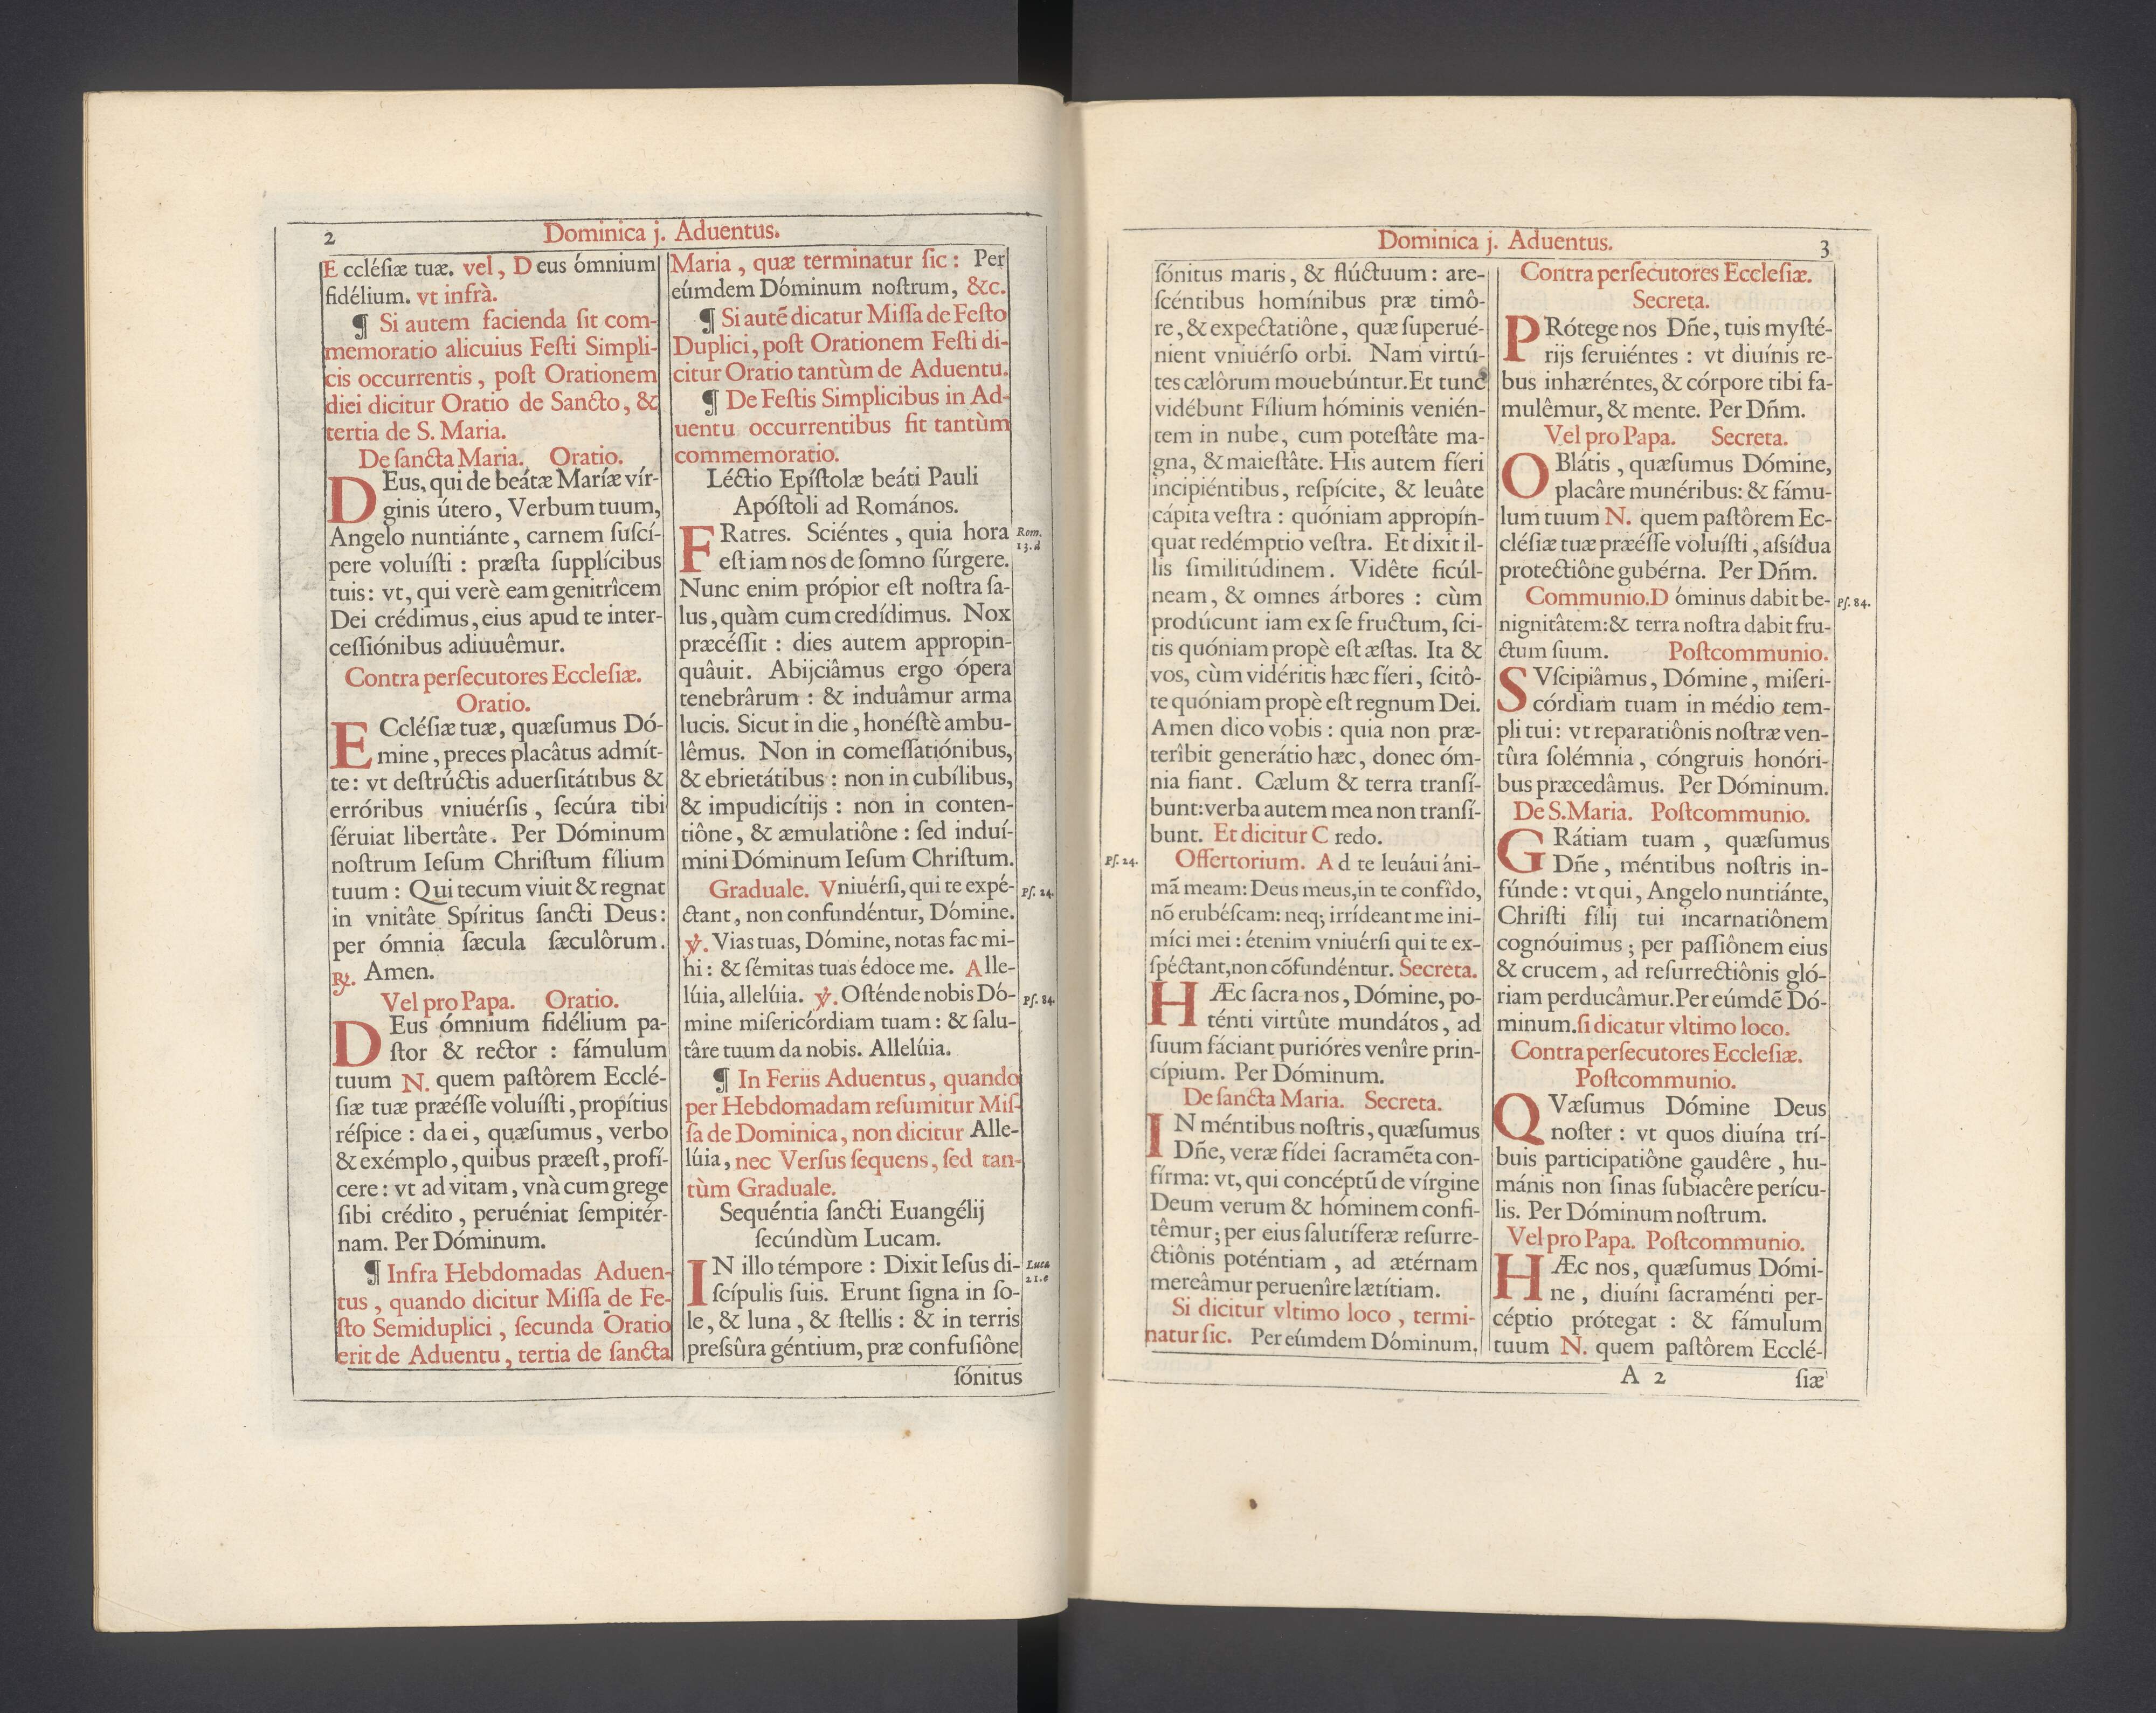 2
Dominica j. Aduentus.
E ccléſiæ tuæ. vel, D eus ómnium
fidélium. vt infrà.
¶ Si autem facienda ſit com-
memoratio alicuius Feſti Simpli-
cis occurrentis, poſt Orationem
diei dicitur Oratio de Sancto, &
tertia de S. Maria.
De ſancta Maria. Oratio.
DEus, qui de beátæ Maríæ vír-
ginis útero, Verbum tuum,
Angelo nuntiánte, carnem ſuſcí-
pere voluíſti : præſta ſupplícibus
tuis: vt, qui verè eam genitrîcem
Dei crédimus, eius apud te inter-
ceſſiónibus adiuuêmur.
Contra perſecutores Eccleſiæ.
Oratio.
ECcléſiæ tuæ, quæſumus Dó-
mine, preces placâtus admít-
te: vt deſtrúctis aduerſitátibus &
erróribus vniuérſis, ſecúra tibi
ſéruiat libertâte. Per Dóminum
noſtrum Ieſum Chriſtum fílium
tuum: Qui tecum viuit & regnat
in vnitâte Spíritus ſancti Deus:
per ómnia ſæcula ſæculôrum.
℟. Amen.
Vel pro Papa. Oratio.
DEus ómnium fidélium pa-
ſtor & rector : fámulum
tuum N. quem paſtôrem Ecclé-
ſiæ tuæ præéſſe voluíſti, propítius
réſpice : da ei, quæſumus, verbo
& exémplo, quibus præeſt, profí-
cere : vt ad vitam, vnà cum grege
ſibi crédito, peruéniat ſempitér-
nam. Per Dóminum.
¶ Infra Hebdomadas Aduen-
tus, quando dicitur Miſſa de Fe-
ſto Semiduplici, ſecunda Oratio
erit de Aduentu, tertia de ſancta
Maria, quæ terminatur ſic : Per
eúmdem Dóminum noſtrum, &c.
¶ Si autẽ dicatur Miſſa de Feſto
Duplici, poſt Orationem Feſti di-
citur Oratio tantùm de Aduentu.
¶ De Feſtis Simplicibus in Ad-
uentu occurrentibus fit tantùm
commemoratio.
Léctio Epíſtolæ beáti Pauli
Apóſtoli ad Romános.
FRatres. Sciéntes, quia hora
Rom.
13. d
eſt iam nos de ſomno ſúrgere.
Nunc enim própior eſt noſtra ſa-
lus, quàm cum credídimus. Nox
præcéſſit : dies autem appropin-
quâuit. Abijciâmus ergo ópera
tenebrârum : & induâmur arma
lucis. Sicut in die, honéſtè ambu-
lêmus. Non in comeſſatiónibus,
& ebrietátibus : non in cubílibus,
& impudicítijs : non in conten-
tiône, & æmulatiône : ſed induí-
mini Dóminum Ieſum Chriſtum.
Graduale. Vniuérſi, qui te expé-
Pſ. 24.
ctant, non confundéntur, Dómine.
℣. Vias tuas, Dómine, notas fac mi-
hi : & ſémitas tuas édoce me. Alle-
lúia, allelúia. ℣. Oſténde nobis Dó-
Pſ. 84.
mine miſericórdiam tuam : & ſalu-
târe tuum da nobis. Allelúia.
¶ In Feriis Aduentus, quando
per Hebdomadam reſumitur Miſ-
ſa de Dominica, non dicitur Alle-
lúia, nec Verſus ſequens, ſed tan-
tùm Graduale.
Sequéntia ſancti Euangélij
ſecúndùm Lucam.
IN illo témpore : Dixit Ieſus di-
Luca
21. e
ſcípulis ſuis. Erunt ſigna in ſo-
le, & luna, & ſtellis : & in terris
preſsûra géntium, præ confuſiône
ſónitus
Dominica j. Aduentus.
3
ſónitus maris, & flúctuum : are-
ſcéntibus homínibus præ timô-
re, & expectatiône, quæ ſuperué-
nient vniuérſo orbi. Nam virtú-
tes cælôrum mouebúntur. Et tunc
vidébunt Filium hóminis venién-
tem in nube, cum poteſtâte ma-
gna, & maieſtâte. His autem fíeri
incipiéntibus, reſpícite, & leuâte
cápita veſtra : quóniam appropín-
quat redémptio veſtra. Et dixit il-
lis ſimilitúdinem. Vidête ficúl-
neam, & omnes árbores : cùm
prodúcunt iam ex ſe fructum, ſci-
tis quóniam propè eſt æſtas. Ita &
vos, cùm vidéritis hæc fíeri, ſcitô-
te quóniam propè eſt regnum Dei.
Amen dico vobis : quia non præ-
terîbit generátio hæc, donec óm-
nia fiant. Cælum & terra tranſí-
bunt: verba autem mea non tranſí-
bunt. Et dicitur C redo.
Pſ. 24.
Offertorium. A d te leuáui áni-
mã meam: Deus meus, in te confído,
nõ erubéſcam: neq; irrídeant me ini-
míci mei : étenim vniuérſi qui te ex-
ſpéctant, non cõfundéntur. Secreta.
HÆc ſacra nos, Dómine, po-
ténti virtûte mundátos, ad
ſuum fáciant purióres venîre prin-
cípium. Per Dóminum.
De ſancta Maria. Secreta.
IN méntibus noſtris, quæſumus
Dñe, veræ fídei ſacramẽta con-
fírma: vt, qui concéptũ de vírgine
Deum verum & hóminem confi-
têmur; per eius ſalutíferæ reſurre-
ctiônis poténtiam, ad ætérnam
mereâmur peruenîre lætítiam.
Si dicitur vltimo loco, termi-
natur ſic. Per eúmdem Dóminum.
Contra perſecutores Eccleſiæ.
Secreta.
PRótege nos Dñe, tuis myſté-
rijs ſeruiéntes : vt diuínis re-
bus inhæréntes, & córpore tibi fa-
mulêmur, & mente. Per Dñm.
Vel pro Papa. Secreta.
OBlátis, quæſumus Dómine,
placâre munéribus: & fámu-
lum tuum N. quem paſtôrem Ec-
cléſiæ tuæ præéſſe voluíſti, aſsídua
protectiône gubérna. Per Dñm.
Communio. D óminus dabit be-
Pſ. 84.
nignitâtem: & terra noſtra dabit fru-
ctum ſuum. Poſtcommunio.
SVſcipiâmus, Dómine, miſeri-
córdiam tuam in médio tem-
pli tui: vt reparatiônis noſtræ ven-
tûra ſolémnia, cóngruis honóri-
bus præcedâmus. Per Dóminum.
De S. Maria. Poſtcommunio.
GRátiam tuam, quæſumus
Dñe, méntibus noſtris in-
fúnde : vt qui, Angelo nuntiánte,
Chriſti filij tui incarnatiônem
cognóuimus ; per paſſiônem eius
& crucem, ad reſurrectiônis gló-
riam perducâmur. Per eúmdẽ Dó-
minum. ſi dicatur vltimo loco.
Contra perſecutores Eccleſiæ.
Poſtcommunio.
QVæſumus Dómine Deus
noſter : vt quos diuína trí-
buis participatiône gaudêre, hu-
mánis non ſinas ſubiacêre perícu-
lis. Per Dóminum noſtrum.
Vel pro Papa. Poſtcommunio.
HÆc nos, quæſumus Dómi-
ne, diuíni ſacraménti per-
céptio prótegat : & fámulum
tuum N. quem paſtôrem Ecclé-
A 2
ſiæ